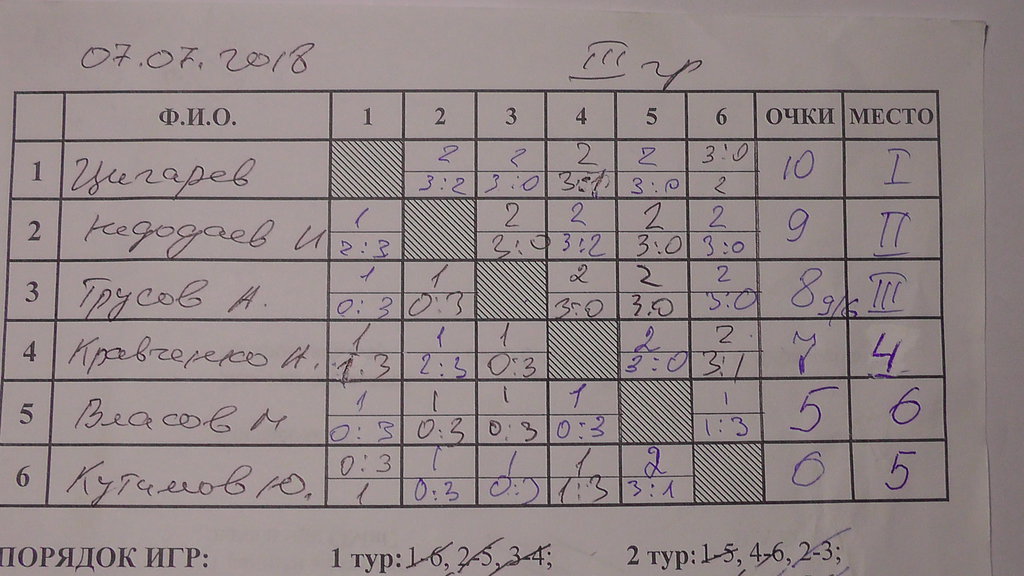 07.07.2018 III гр
Ф.И.О. 1 2 3 4 5 6 ОЧКИ МЕСТО
1 Цигарев 2 2 2 2 3:0 10 I
3:2 3:0 3:1 3:0 2
2 Недодаев И 1 2 2 2 2 9 II
2:3 3:0 3:2 3:0 3:0
3 Трусов А. 1 1 2 2 2 8 9/6 III
0:3 0:3 3:0 3:0 3:0
4 Кравченко А. 1 1 1 2 2 7 4
1:3 2:3 0:3 3:0 3:1
5 Власов М 1 1 1 1 1 5 6
0:3 0:3 0:3 0:3 1:3
6 Кутимов Ю. 0:3 1 1 1 2 6 5
1 0:3 0:3 1:3 3:1
ПОРЯДОК ИГР: 1 тур: 1-6, 2-5, 3-4; 2 тур: 1-5, 4-6, 2-3;